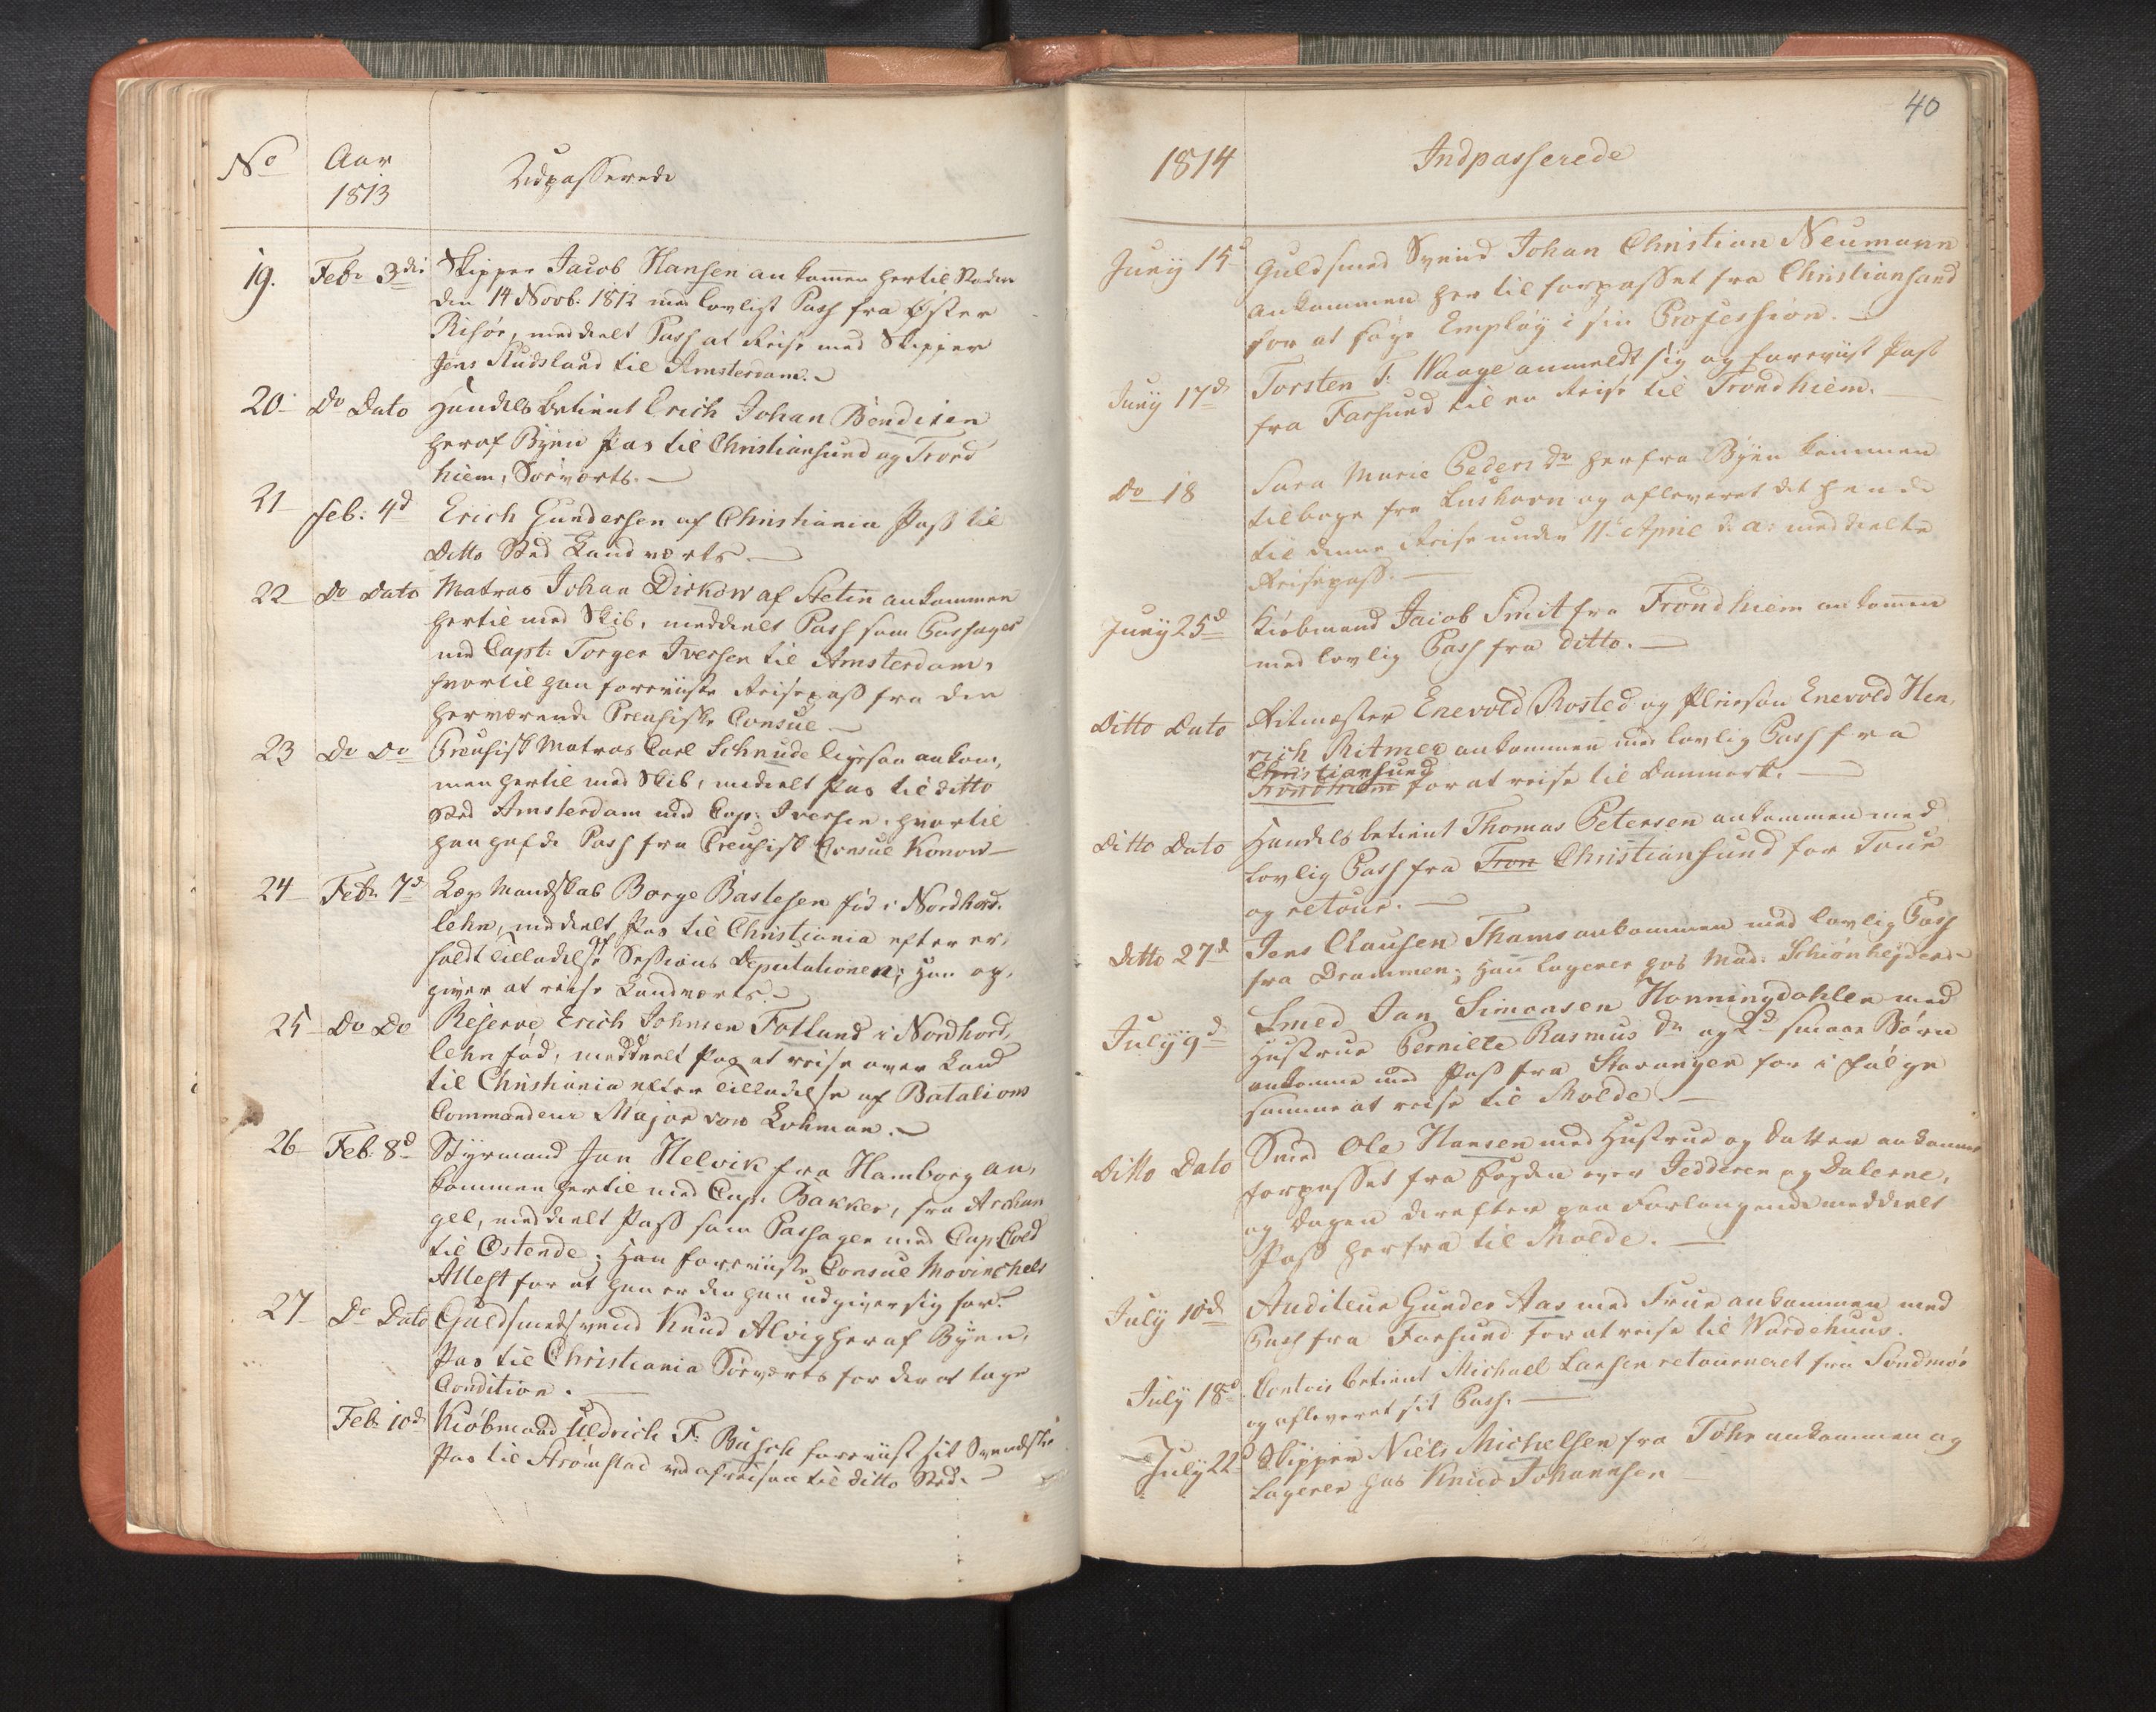 No Aar Udpasserede
1813
19. Feb. 3die Skipper Jacob Hansen ankommen hertil Staden
den 14 Novb. 1812 med lovligt Pass fra Øster
Risøer, meddelt Pass at Reise med Skipper
Jens Studsland til Amsterdam.
20 Do Dato Handelsbetient Erich Johan Bendixen
heraf Byen Pas til Christiansund og Trond
hiem, Søeværts.
21 Feb: 4d Erich Gundersen af Christiania Pass til
Ditto Sted Landværts.
22 Do Dato Matros Johan Dirkow af Stetin ankommen
hertil med Skib, meddeelt Pass som Passager
med Capt. Torger Iversen til Amsterdam,
hvortil han foreviiste Reisepass fra den
herværende Preusiske Consul
23 Do Do Preusisk Matros Carl Schnude ligesaa ankom,
men hertil med Skib, meddelt Pas til ditto
Sted Amsterdam med Cap: Iversen, hvortil
han hafde Pass fra Preusisk Consul Konow
24 Feb. 7d Læg Mandskab Børge Bastesen fød i Nordhord,
lehn, meddeelt Pas til Christiania efter er,
holdt Tilladelse af Sessions Deputationen; Han op,
giver at reise Landværts.
25 Do Do Reserve Erich Johnsen Fotland i Nordhord,
lehn fød, meddeelt Pas at reise over Land
til Christiania efter Tilladelse af Batalions
Commandeur Major von Lohman.
26 Feb. 8d Styrmand Jan Helvik fra Hamborg an,
kommen hertil med Cap. Bakker, fra Archan
gel, meddeelt Pass som Passager med Cap: Cold
til Ostende; Han foreviiste Consul Movinchels
Attest for at han er den han udgiver sig for.
27 Do Dato Guldsmedsvend Knud Alvig heraf Byen,
Pas til Christiania Søeværts for der at tage
Condition.
Feb. 10d Kiøbmand Uldrich F: Busch foreviist sit Svendske
Pas til Strømstad ved afreisen til ditto Sted.
40
1814 Indpasserede
Juny 15d Guldsmed Svend Johan Christian Neumann
ankommen her til forpasset fra Christiansand
for at søge Employ i sin Profession.
Juny 17d Torsten T. Waage anmeldt sig og foreviist Pass
fra Farsund til en Reise til Trondhiem.
Do 18 Sara Marie Peders Dr herfra Byen kommen
tilbage fra Lushavn og afleveret det hende
til denne Reise under 11te April d: a: meddeelte
Reisepass.
Juny 25d Kiøbmand Jacob Smit fra Trondhiem ankommen
med lovlig Pass fra ditto.
Ditto Dato Ritmester Enevold Rosted og Pleiesøn Enevold Hen,
rich Ritmer ankommen med lovlig Pass fra
Christiansund
Trondhiem for at reise til Danmark.
Ditto Dato Handelsbetient Thomas Petersen ankommen med
lovlig Pass fra Tron Christiansund for Tour
og retour.
Ditto 27d Jens Clausen Thams ankommen med lovlig Pass
fra Drammen; Han logerer hos Mad: Schiønheyder
July 9d Smed Jan Simonsen Honningdahlen med
Hustrue Pernille Rasmus Dr og 2d smaae Børn
ankomne med Pass fra Stavanger for i følge
samme at reise til Molde.
Ditto Dato Smed Ole Hansen med Hustrue og Datter ankommen
forpasset fra Fogden over Jedderen og Dalerne,
og Dagen derefter paa Forlangende meddeelt
Pass herfra til Molde.
July 10d Auditeur Gunder Aas med Frue ankommen med
Pass fra Farsund for at reise til Wardehuus.
July 18d Contoir betient Michael Larsen retourneret fra Søndmør
og afleveret sit Pass.
July 22d Skipper Niels Michelsen fra Føhr ankommen og
logerer hos Knud Johannsen